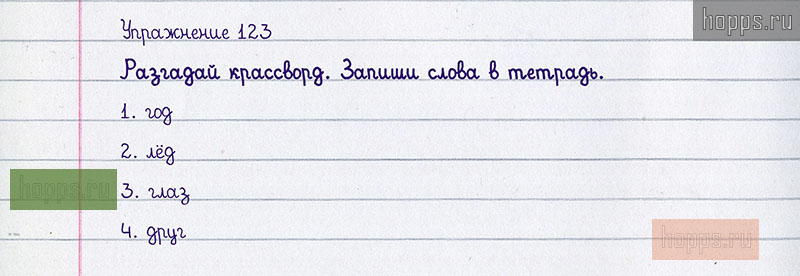 hopps.ru
Упражнение 123
Разгадай крассворд. Запиши слова в тетрадь.
1. год
2. лёд
hopps.ru
3. глаз
4. друг
hopps.ru